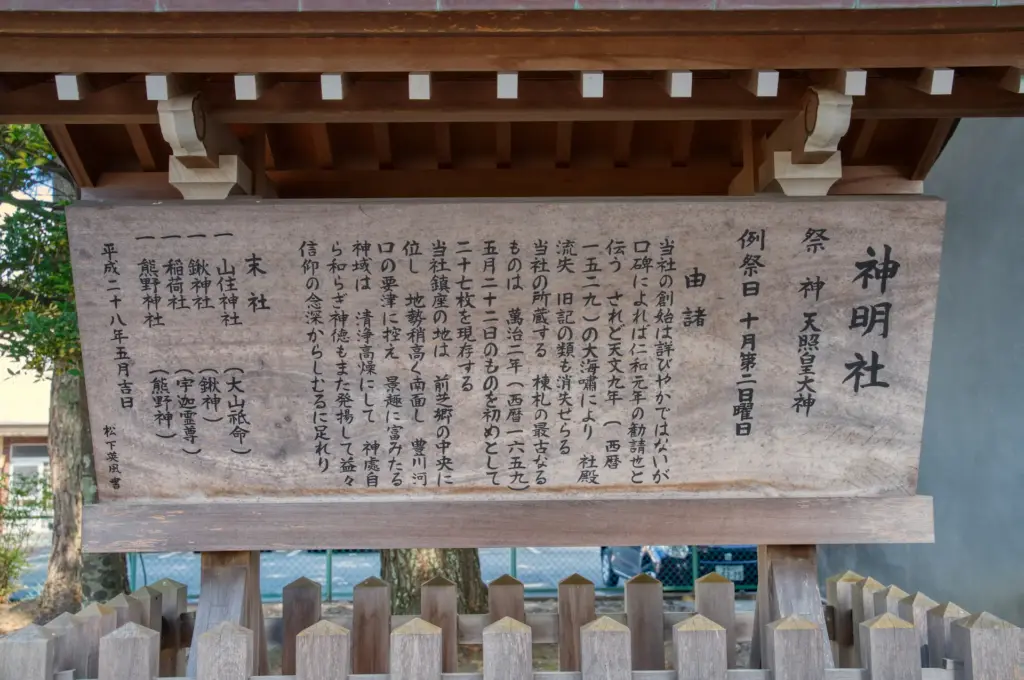 神明社
祭神 天照皇大神
例祭日 十月第二日曜日
由諸
当社の創始は詳びやかではないが
口碑によれば仁和元年の勧請也と
伝う されど天文九年 (西暦
一五二九)の大海嘯により 社殿
流失 旧記の類も消失せらる
当社の所蔵する 棟札の最古なる
ものは 萬治二年(西暦一六五九)
五月二十二日のものを初めとして
二十七枚を現存する
当社鎮座の地は 前芝郷の中央に
位し 地勢稍高く南面し 豊川河
口の要津に控え 景趣に富みたる
神域は 清浄高燥にして 神慮自
ら和らぎ神徳もまた発揚して益々
信仰の念深からしむるに足れり
末社
一 山住神社 (大山祇命)
一 鍬神社 (鍬神)
一 稲荷社 (宇迦霊尊)
一 熊野神社 (熊野神)
平成二十八年五月吉日
松下英風書